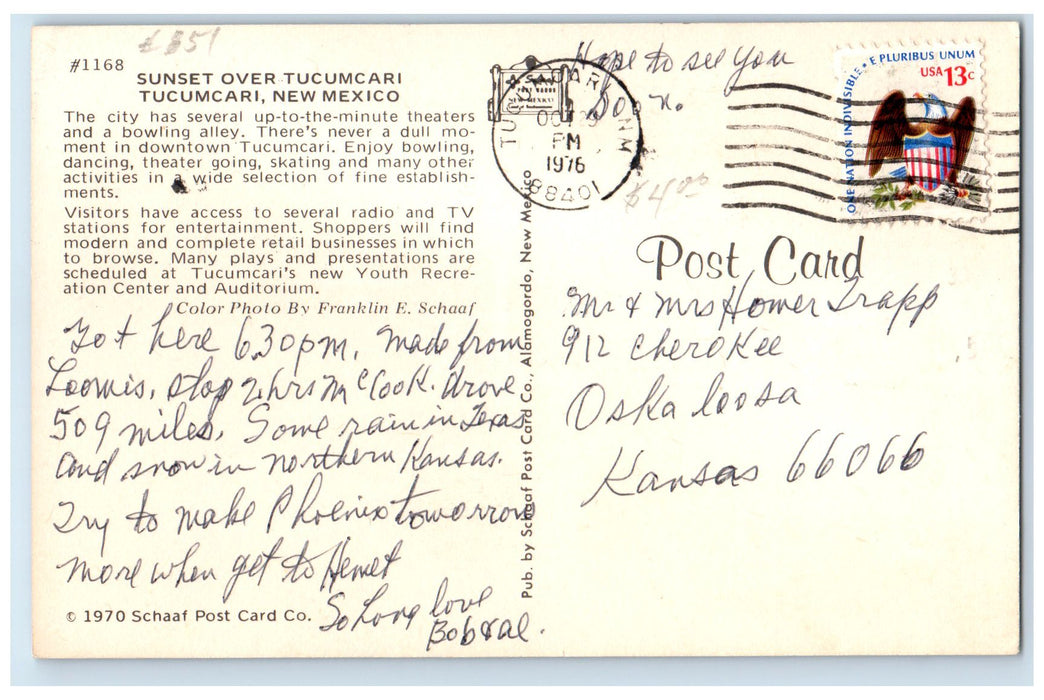 £851
#1168
SUNSET OVER TUCUMCARI
TUCUMCARI, NEW MEXICO
The city has several up-to-the-minute theaters
and a bowling alley. There's never a dull mo-
ment in downtown Tucumcari. Enjoy bowling,
dancing, theater going, skating and many other
activities in a wide selection of fine establish-
ments.
Visitors have access to several radio and TV
stations for entertainment. Shoppers will find
modern and complete retail businesses in which
to browse. Many plays and presentations are
scheduled at Tucumcari's new Youth Recre-
ation Center and Auditorium.
Color Photo By Franklin E. Schaaf
Got here 6.30pm. Made from
Loomis. stop 2 hrs McCook. drove
509 miles. Some rain in Texas
and snow in northern Kansas.
Try to make Phoenix tomorrow
more when get to Hemet
So Long love
Bob & al.
© 1970 Schaaf Post Card Co.
Pub. by Schaaf Post Card Co., Alamogordo, New Mexico
Hope to see you
TUCUMCARI NM
PM
1976
88401
$4.00
ONE NATION INDIVISIBLE • E PLURIBUS UNUM
USA 13c
Post Card
Mr & Mrs Homer Trapp
912 Cherokee
Oskaloosa
Kansas 66066